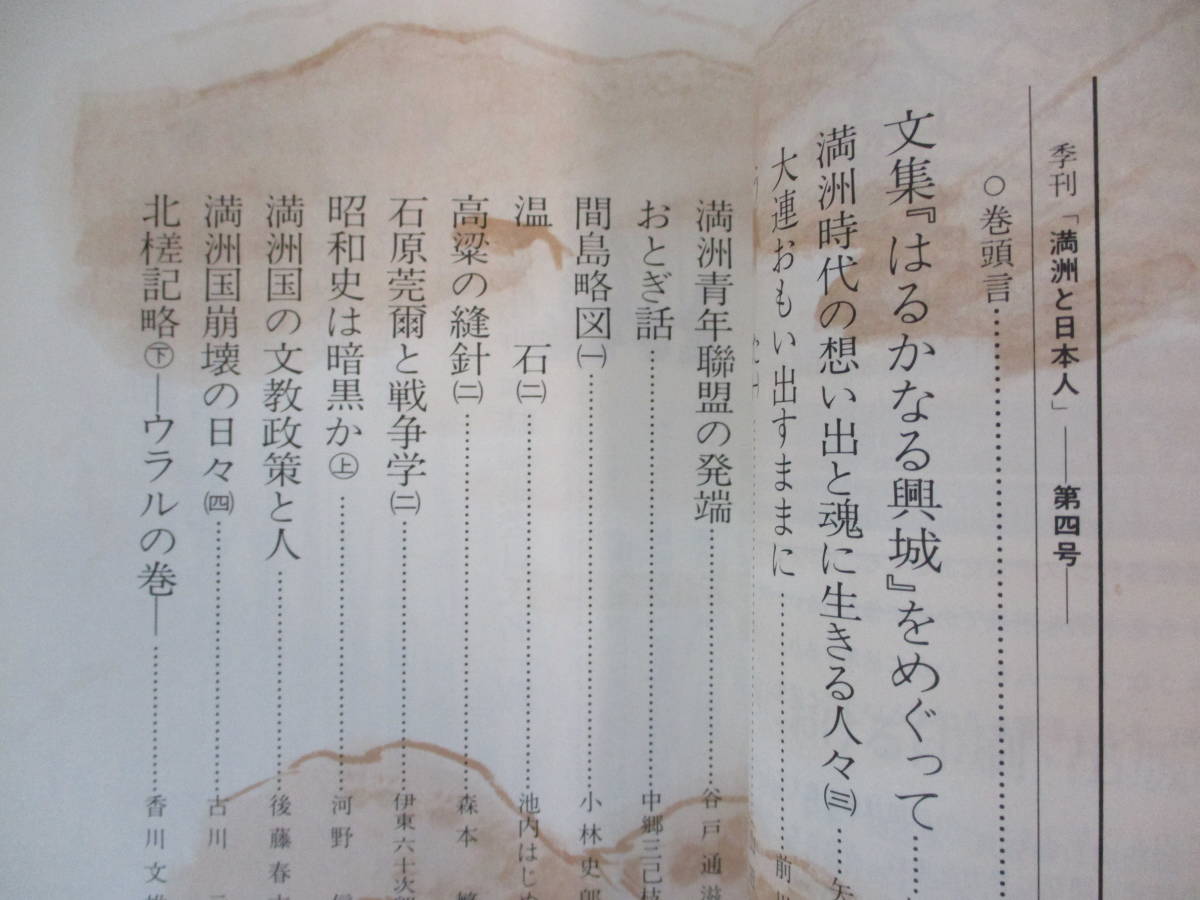 季刊「満洲と日本人」――第四号――
○巻頭言…………………………
文集『はるかなる興城』をめぐって……
満洲時代の想い出と魂に生きる人々㈢……矢
大連おもい出すままに……………………前
満洲青年聯盟の発端…………………………谷戸通滋
おとぎ話………………………………………中郷三己枝
間島略図㈠……………………………………小林史郎
温石㈡…………………………………………池内はじめ
高粱の縫針㈡…………………………………森本繁
石原莞爾と戦争学㈡…………………………伊東六十次郎
昭和史は暗黒か㊤……………………………河野
満洲国の文教政策と人………………………後藤春
満洲国崩壊の日々㈣…………………………古川
北槎記略㊦――ウラルの巻――……………香川文雄